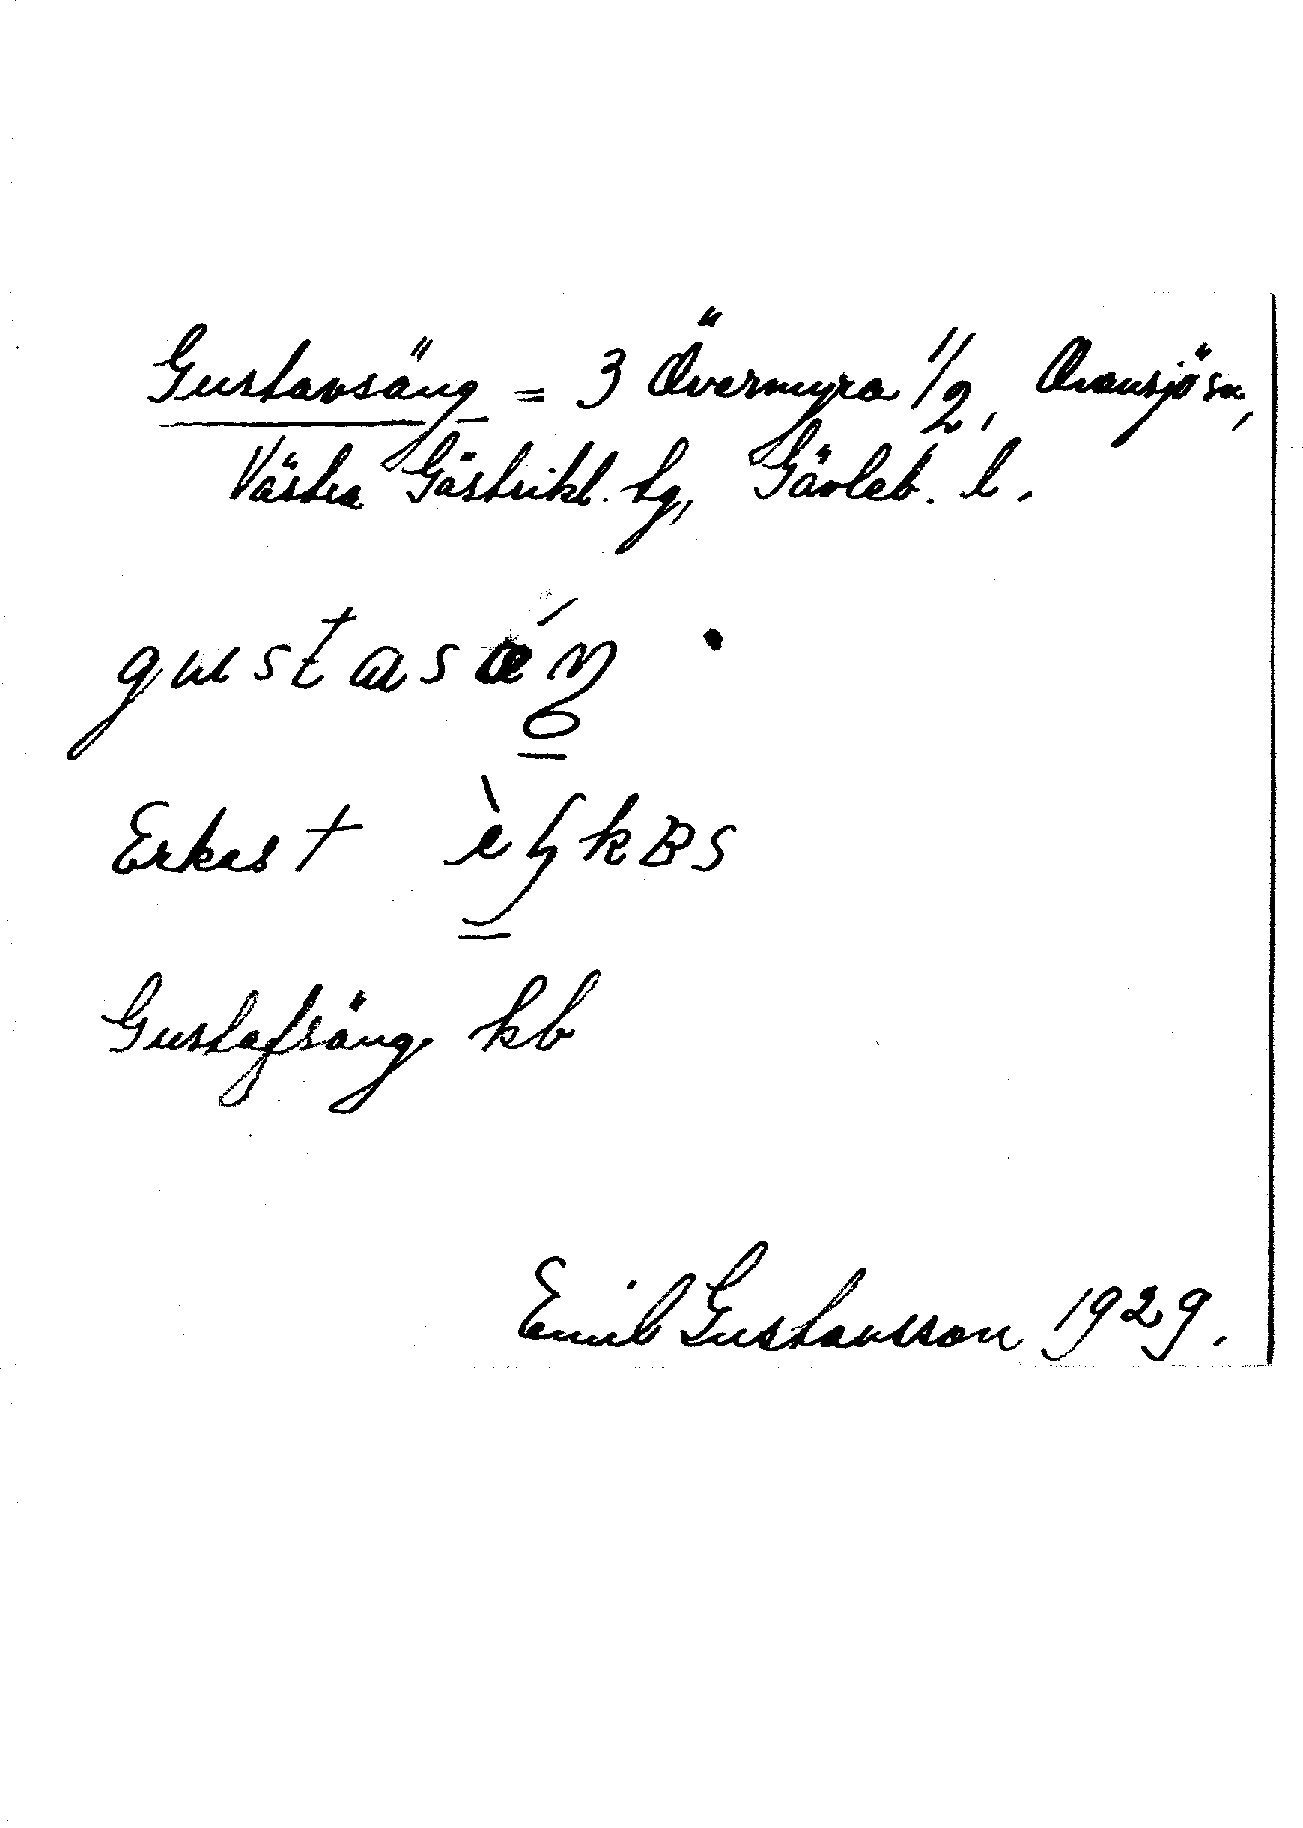 Gustavsäng = 3 Övermyra 1/2, Ovansjö sn,
Västra Gästrikl. tg, Gävleb. l.
gustasǽŋ
Erkes +
Gustafsäng kb
Emil Gustavsson 1929.